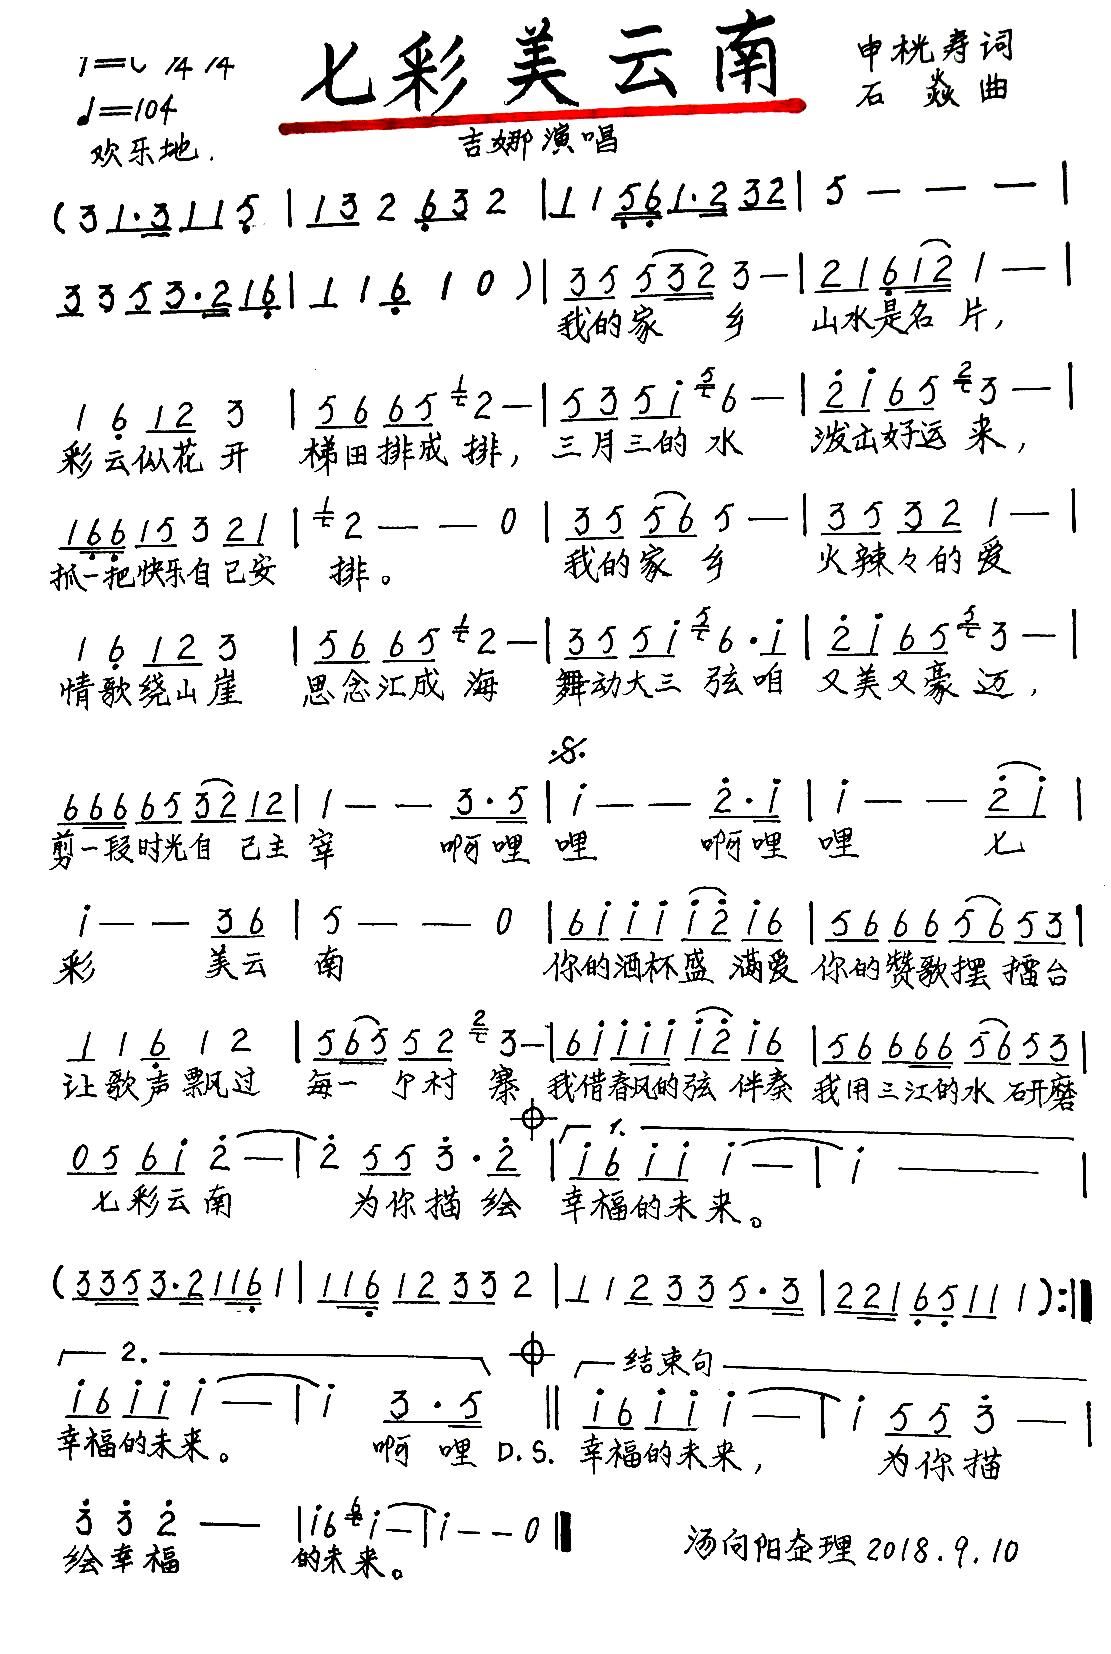 七彩美云南
申桄寿词
石焱曲
♩=104
欢乐地.
吉娜演唱
(3 1·3 1 1 5 | 1 3 2 6 3 2 | 1 1 5 6 1·2 3 2 | 5 — — — |
3 3 5 3·2 1 6 | 1 1 6 1 0 ) | 3 5 5 3 2 3 — | 2 1 6 1 2 1 — |
我的家 乡 山水是名 片,
1 6 1 2 3 | 5 6 6 5 1 2 — | 5 3 5 i 5 6 — | 2 i 6 5 2 3 — |
彩云似花开 梯田排成排, 三月三的水 泼出好运来,
1 6 6 1 5 3 2 1 | 1 2 — — 0 | 3 5 5 6 5 — | 3 5 3 2 1 — |
抓一把快乐自己安 排。 我的家 乡 火辣々的爱
1 6 1 2 3 | 5 6 6 5 1 2 — | 3 5 5 i 5 6·i | 2 i 6 5 5 3 — |
情歌绕山崖 思念汇成海 舞动大三弦咱 又美又豪迈,
6 6 6 6 5 3 2 1 2 | 1 — — 3·5 | i — — 2·i | i — — 2 i |
剪一段时光自 己主 宰 啊哩 哩 啊哩 哩 七
i — — 3 6 | 5 — — 0 | 6 i i i i 2 i 6 | 5 6 6 6 5 6 5 3 |
彩 美云 南 你的酒杯盛 满爱 你的赞歌摆 擂台
1 1 6 1 2 | 5 6 5 5 2 2 3 — | 6 i i i i i 2 i 6 | 5 6 6 6 6 5 6 5 3 |
让歌声飘过 每一 个村 寨 我借春风的弦 伴奏 我用三江的水 研磨
1.
0 5 6 i 2 — | 2 5 5 3·2 | i 6 i i i — | i ——— |
七彩云南 为你描绘 幸福的未来。
(3 3 5 3·2 1 1 6 1 | 1 1 6 1 2 3 3 2 | 1 1 2 3 3 5·3 | 2 2 1 6 5 1 1 1 ) :‖
2. 结束句
i 6 i i i — | i 3·5 ‖ i 6 i i i — | i 5 5 3 — |
幸福的未来。 啊哩 D.S. 幸福的未来, 为你描
3 3 2 — | i 6 6 i — | i — — 0 ‖
绘幸福 的未来。
汤向阳整理 2018.9.10